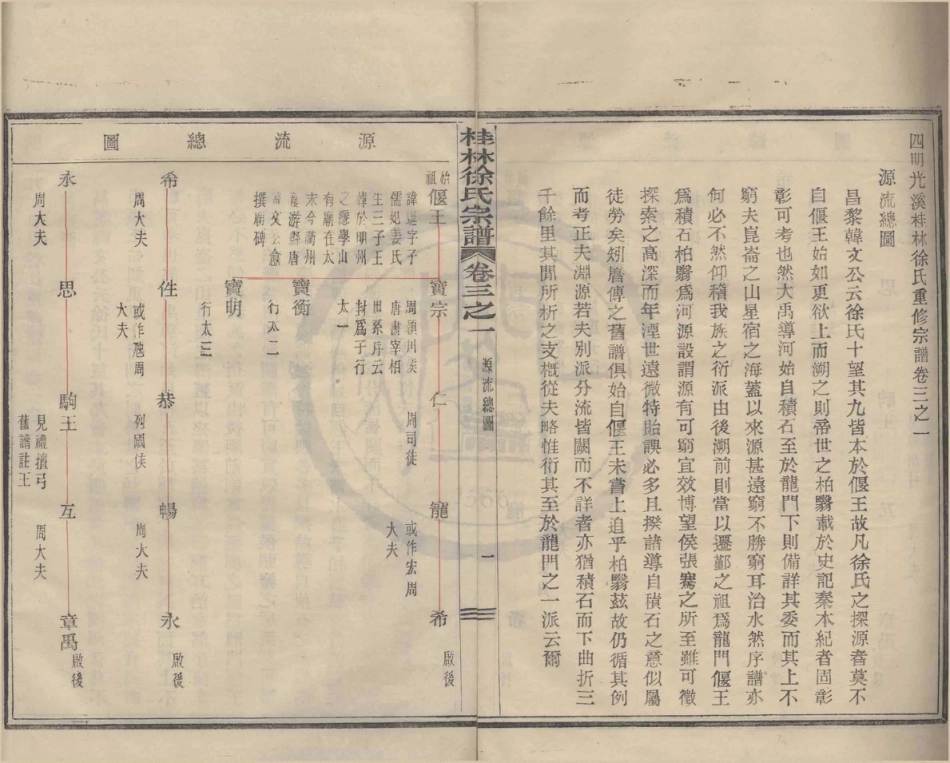 四明光溪桂林徐氏重修宗譜卷三之一
源流總圖
昌黎韓文公云徐氏十望其九皆本於偃王故凡徐氏之探源者莫不
自偃王始如更欲上而溯之則帝世之柏翳載於史記秦本紀者固彰
彰可考也然大禹導河始自積石至於龍門下則備詳其委而其上不
窮夫崑崙之山星宿之海蓋以來源甚遠窮不勝窮耳治水然序譜亦
何必不然仰稽我族之衍派由後溯前則當以遷鄞之祖爲龍門偃王
爲積石柏翳爲河源設謂源有可窮宜效博望侯張騫之所至雖可徵
探索之高深而年湮世遠微特貽誤必多且揆諸導自積石之意似屬
徒勞矣矧曆傳之舊譜俱始自偃王未嘗上追乎柏翳茲故仍循其例
而考正夫淵源若夫別派分流皆闕而不詳者亦猶積石而下曲折三
千餘里其閒所析之支概從夫略惟衍其至於龍門之一派云爾
桂林徐氏宗譜
卷三之一
源流總圖
一
源流總圖
始祖
偃王
諱誕字子
儒妃姜氏
生三子王
葬於明州
之隱學山
有廟在太
末今衢州
龍游縣唐
韓文公愈
撰廟碑
寶宗
周潁川侯
唐書宰相
世系序云
封爲子行
太一
寶衡
行太二
寶明
行太三
仁
周司徒
寵
或作宏周
大夫
希
啟後
希
周大夫
侳
或作虺周
大夫
恭
列國侯
暢
周大夫
永
啟後
永
周大夫
思
駒王
見禮檀弓
舊譜註王
互
周大夫
章禹
啟後